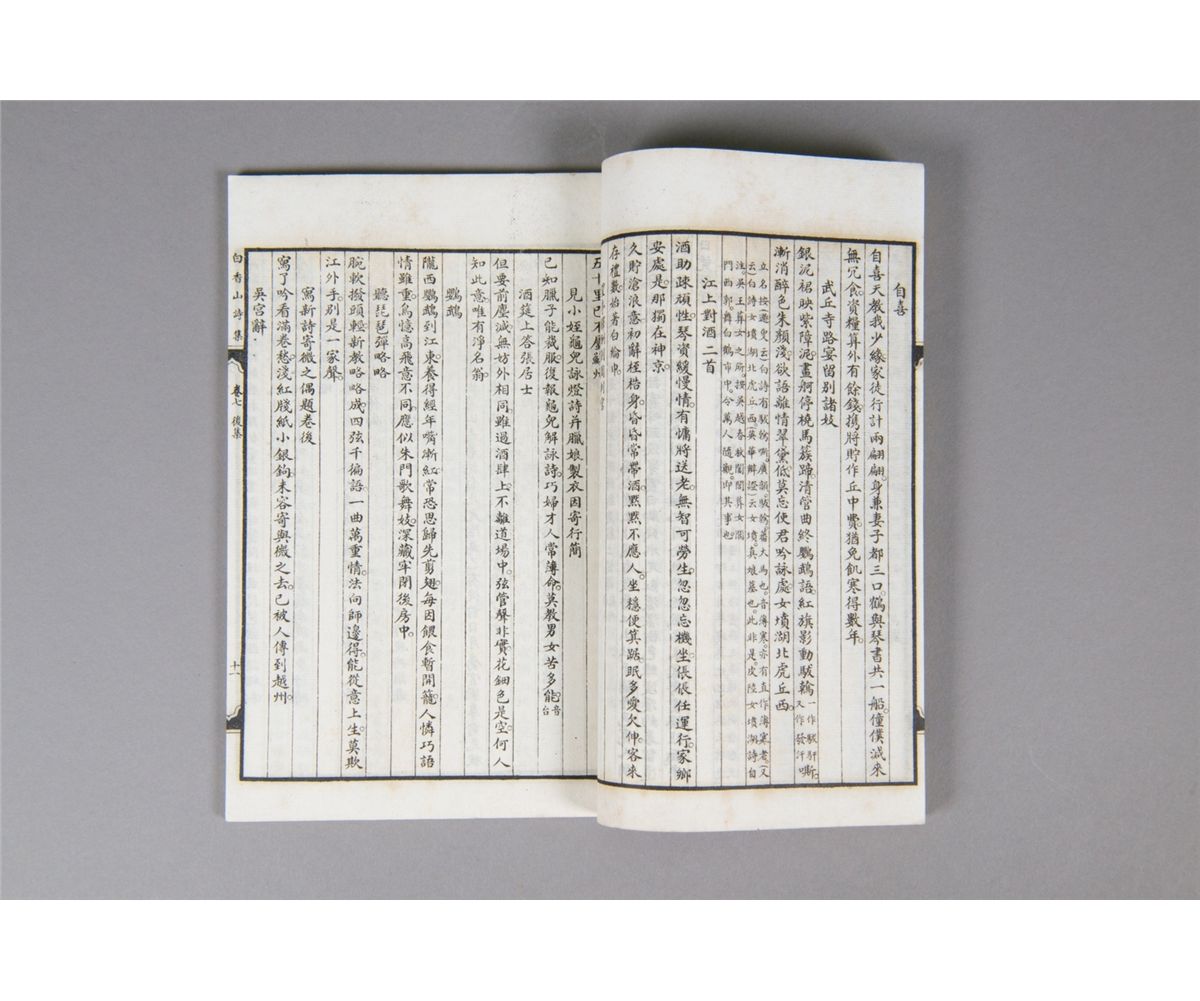 自喜
自喜天教我少緣家徒行計兩翩翩身兼妻子都三口鶴與琴書共一船僮僕減來
無冗食資糧算外有餘錢攜將貯作丘中費猶免飢寒得數年
武丘寺路宴留別諸妓
銀泥裙映紫障泥畫舸停橈馬簇蹄清管曲終鸚鵡語紅旗影動駮䮧
漸消醉色朱顏淺欲語離情翠黛低莫忘使君吟詠處女墳湖北虎丘西
江上對酒二首
酒助疎頑性琴資緩慢情有慵將送老無智可勞生忽忽忘機坐倀倀任運行家鄉
安處是那獨在神京
久貯滄浪意初辭桎梏身昏昏常帶酒默默不應人坐穩便箕踞眠多愛欠伸客來
存禮數始著白綸巾
見小姪龜兒詠燈詩并臘娘製衣因寄行簡
已知臘子能裁服復報龜兒解詠詩巧婦才人常薄命莫教男女苦多能音台
酒筵上答張居士
但要前塵滅無妨外相同雖過酒肆上不離道場中弦管聲非實花鈿色是空何人
知此意唯有淨名翁
鸚鵡
隴西鸚鵡到江東養得經年嘴漸紅常恐思歸先剪翅每因餵食暫開籠人憐巧語
情雖重鳥憶高飛意不同應似朱門歌舞妓深藏牢閉後房中
聽琵琶彈略略
腕軟撥頭輕新教略略成四弦千徧語一曲萬重情法向師邊得能從意上生莫欺
江外手別是一家聲
寫新詩寄微之偶題卷後
寫了吟看滿卷愁淺紅牋紙小銀鉤未容寄與微之去已被人傳到越州
吳宮辭
白香山詩集
卷七 後集
十一